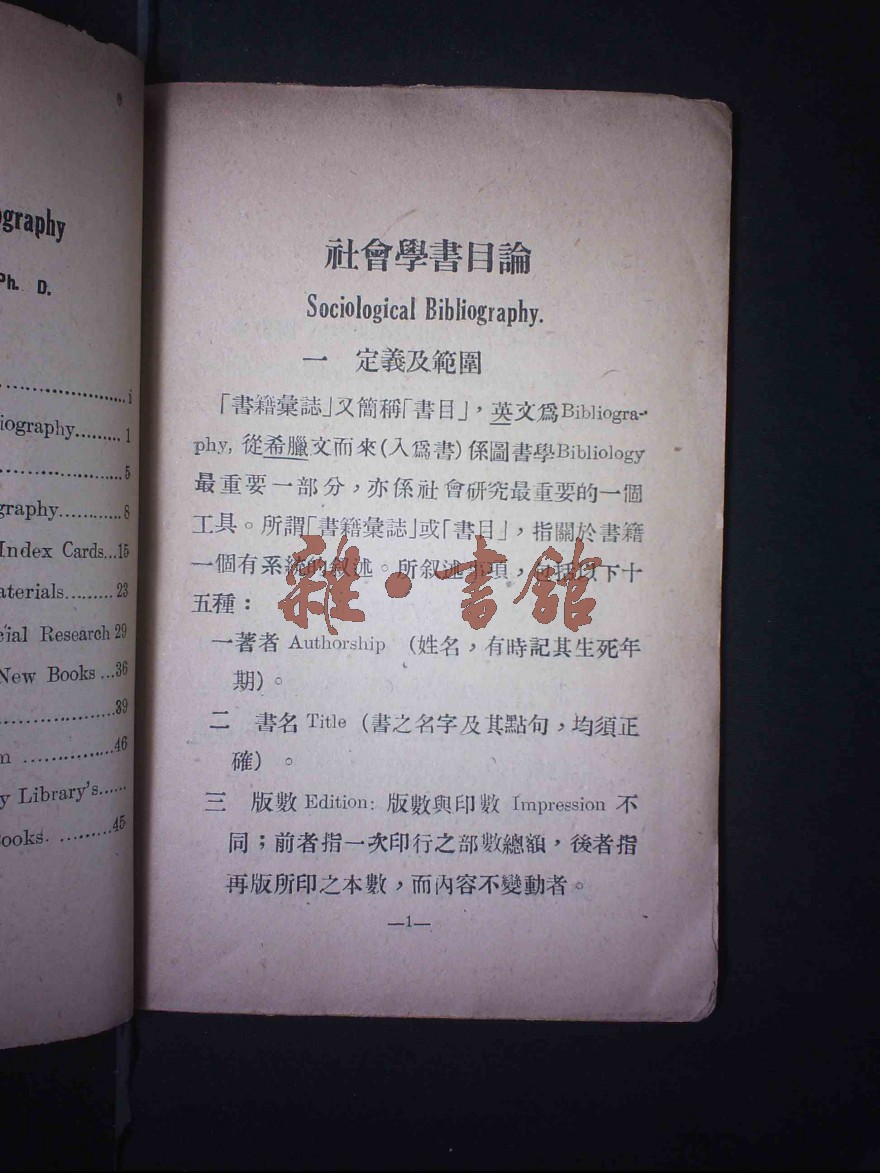 ography
Ph. D.
i
iography......... 1
5
graphy............8
Index Cards...15
aterials......... 23
cial Research 29
New Books ...36
39
m ...............46
y Library's......
ooks. ..........45
社會學書目論
Sociological Bibliography.
一 定義及範圍
「書籍彙誌」又簡稱「書目」，英文爲Bibliogra-
phy, 從希臘文而來(入爲書)係圖書學Bibliology
最重要一部分，亦係社會研究最重要的一個
工具。所謂「書籍彙誌」或「書目」，指關於書籍
一個有系統的叙述。所叙述事項，包括以下十
五種：
一著者 Authorship (姓名，有時記其生死年
期)。
二 書名 Title (書之名字及其點句，均須正
確)。
三 版數 Edition: 版數與印數 Impression 不
同；前者指一次印行之部數總額，後者指
再版所印之本數，而內容不變動者。
—1—
雜·書館